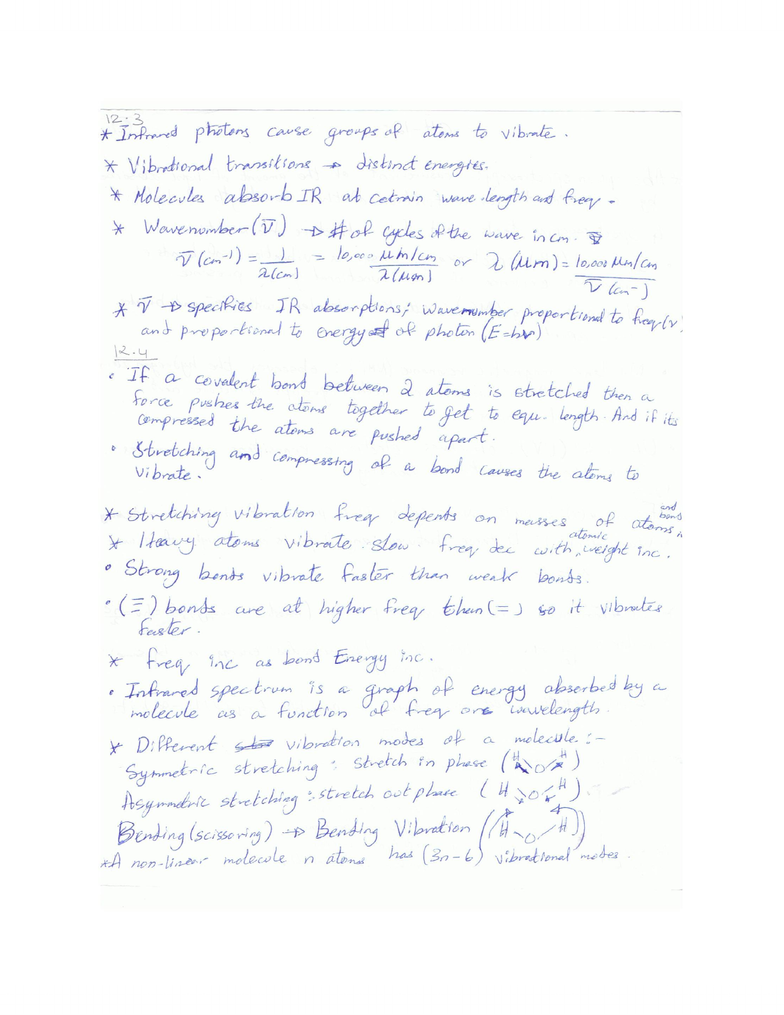 12.3
* Infrared photons cause groups of atoms to vibrate.
* Vibrational transitions → distinct energies.
* Molecules absorb IR at cetrain wave length and freq.
* Wavenumber (ν̅) → # of cycles of the wave in cm.
ν̅ (cm⁻¹) = 1/λ(cm) = 10,000 μm/cm / λ(μm) or λ (μm) = 10,000 μm/cm / ν̅ (cm⁻)
* ν̅ → specifies IR absorptions; wavenumber proportional to freq (ν)
and proportional to energy of photon (E=hν)
12.4
• If a covalent bond between 2 atoms is stretched then a
force pushes the atoms together to get to equ. length. And if its
compressed the atoms are pushed apart.
• Stretching and compressing of a bond causes the atoms to
vibrate.
* Stretching vibration freq depends on masses of atoms and bond
* Heavy atoms vibrate slow. freq dec with atomic weight inc.
• Strong bonds vibrate faster than weak bonds.
• (≡) bonds are at higher freq than (=) so it vibrates
faster.
* freq inc as bond Energy inc.
• Infrared spectrum is a graph of energy absorbed by a
molecule as a function of freq or wavelength.
* Different vibration modes of a molecule :-
Symmetric stretching : stretch in phase (H O H)
Asymmetric stretching : stretch out phase (H O H)
Bending (scissoring) → Bending Vibration (H O H)
* A non-linear molecule n atoms has (3n-6) vibrational modes.